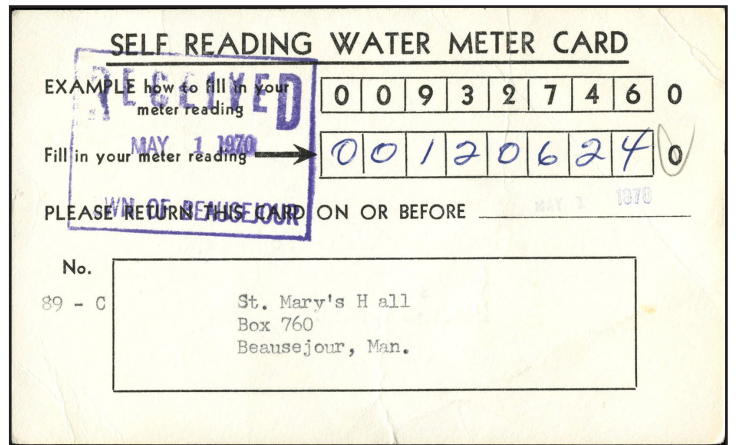 SELF READING WATER METER CARD
EXAMPLE how to fill in your
meter reading
0 0 9 3 2 7 4 6 0
RECEIVED
MAY 1 1970
WN OF BEAUSEJOUR
Fill in your meter reading
0 0 1 2 0 6 2 4 0
PLEASE RETURN THIS CARD ON OR BEFORE MAY 1 1970
No.
89 - C
St. Mary's H all
Box 760
Beausejour, Man.